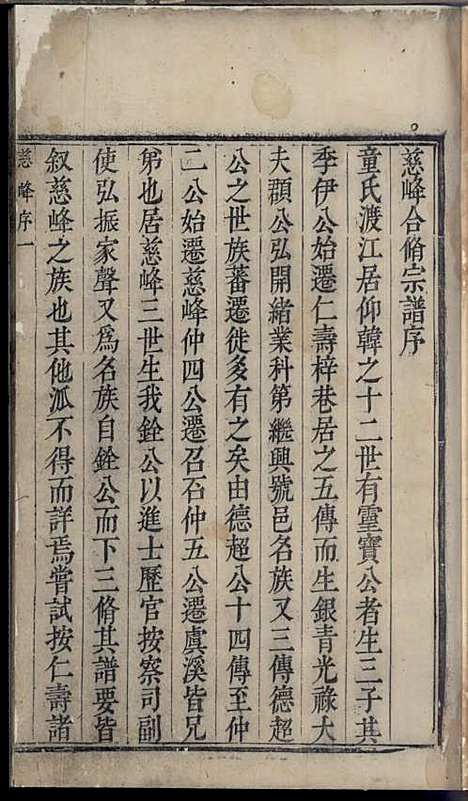 慈峰合脩宗譜序
童氏渡江居仰韓之十二世有靈寶公者生三子其
季伊公始遷仁壽梓巷居之五傳而生銀青光祿大
夫顥公弘開緒業科第繼興號邑名族又三傳德超
公之世族蕃遷徙多有之矣由德超公十四傳至仲
二公始遷慈峰仲四公遷召石仲五公遷虞溪皆兄
弟也居慈峰三世生我銓公以進士歷官按察司副
使弘振家聲又爲名族自銓公而下三脩其譜要皆
叙慈峰之族也其他派不得而詳焉嘗試按仁壽諸
慈峰序一